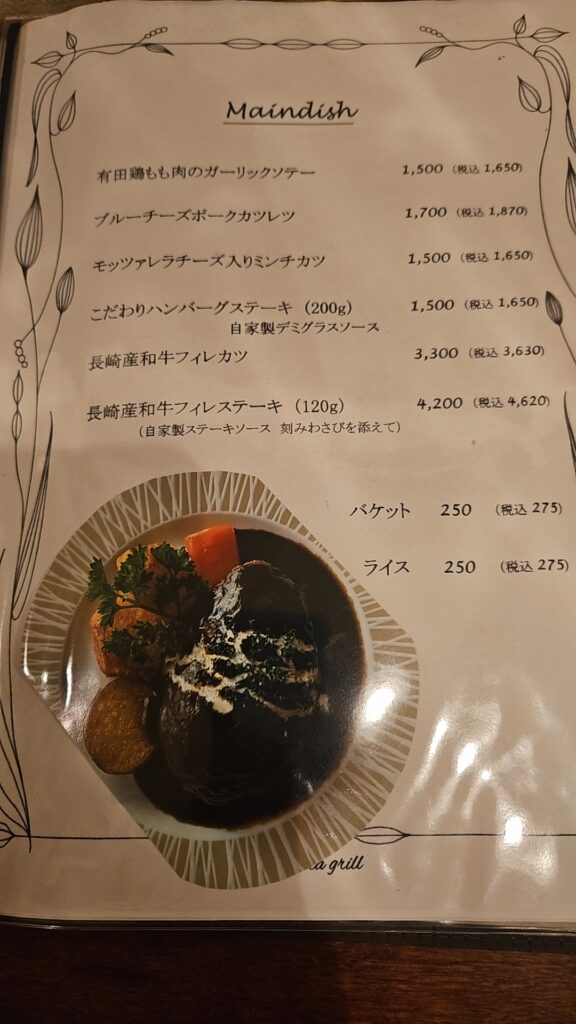 Maindish
有田鶏もも肉のガーリックソテー 1,500 (税込 1,650)
ブルーチーズポークカツレツ 1,700 (税込 1,870)
モッツァレラチーズ入りミンチカツ 1,500 (税込 1,650)
こだわりハンバーグステーキ (200g) 1,500 (税込 1,650)
自家製デミグラスソース
長崎産和牛フィレカツ 3,300 (税込 3,630)
長崎産和牛フィレステーキ (120g) 4,200 (税込 4,620)
(自家製ステーキソース 刻みわさびを添えて)
バケット 250 (税込 275)
ライス 250 (税込 275)
grill